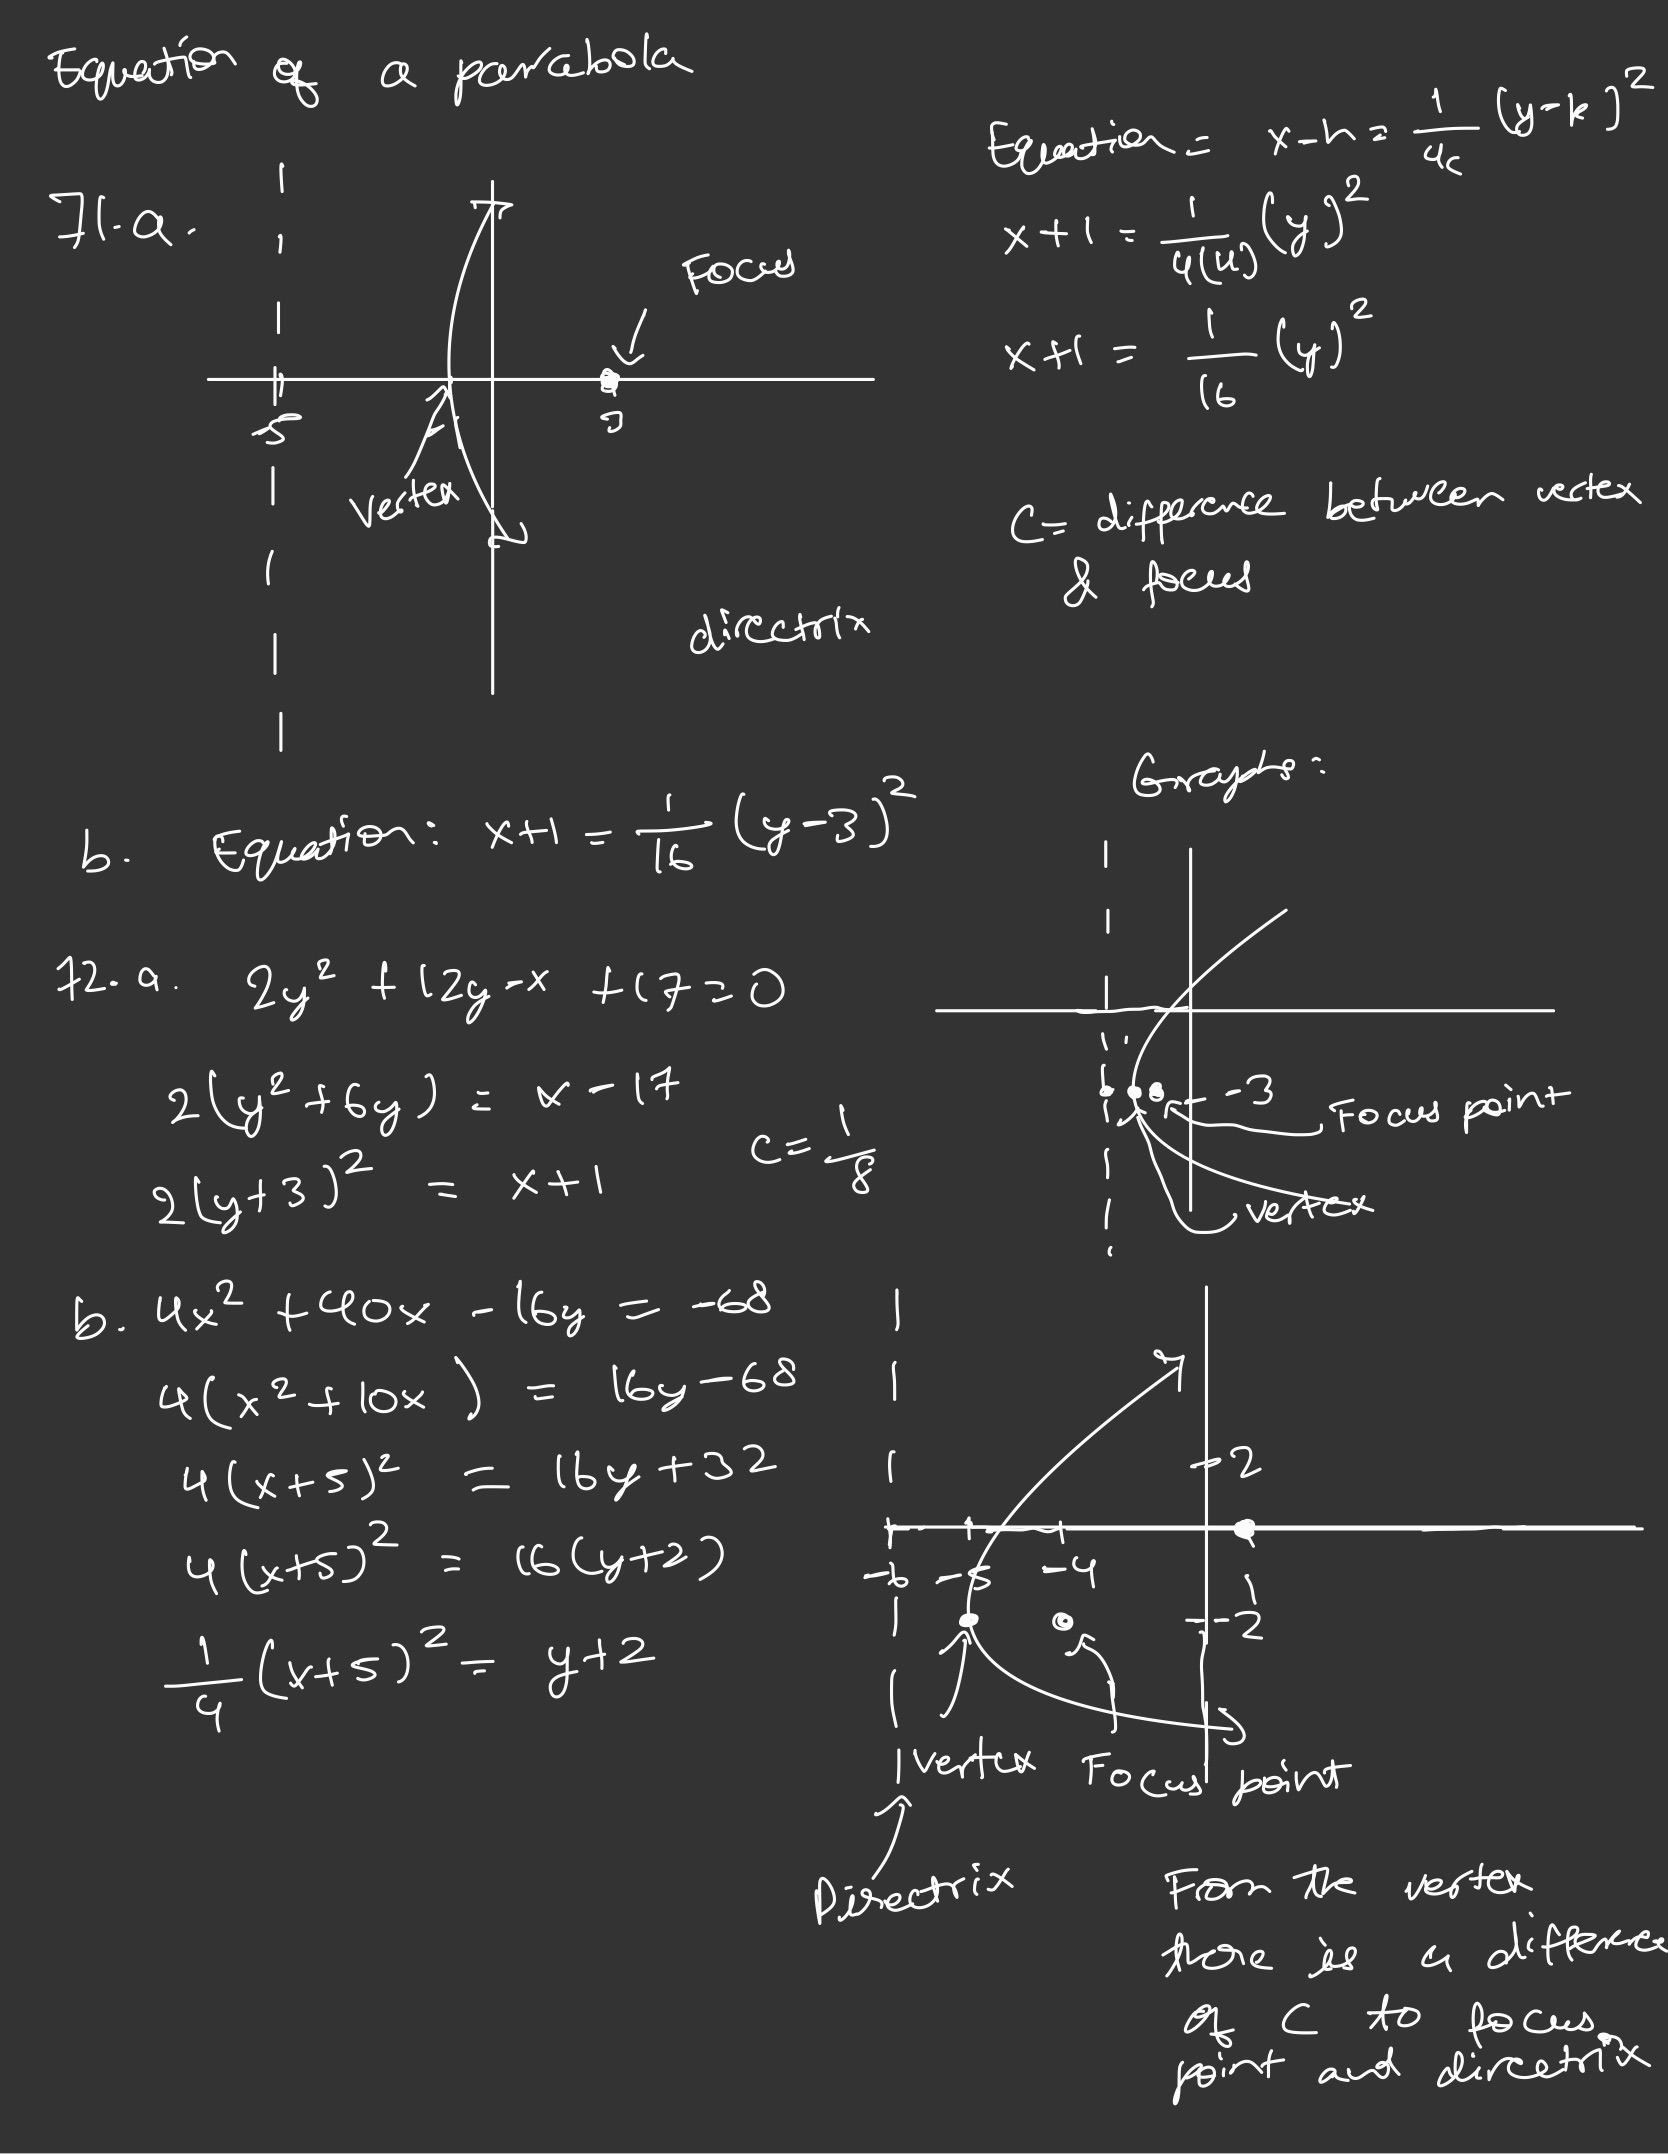 Equation of a parabola
71.a.
Focus
-5
3
vertex
directrix
Equation = x-h = 1/4c (y-k)²
x+1 = 1/4(4) (y)²
x+1 = 1/16 (y)²
C = difference between vertex
& focus
b. Equation: x+1 = 1/16 (y-3)²
Graphs:
72. a. 2y² + 12y - x + 17 = 0
2(y² + 6y) = x - 17
2(y+3)² = x+1
C = 1/8
-3
Focus point
vertex
b. 4x² + 40x - 16y = -68
4(x² + 10x ) = 16y - 68
4(x+5)² = 16y + 32
4(x+5)² = 16(y+2)
1/4 (x+5)² = y+2
2
-6 -5 -4 1
-2
vertex Focus point
Directrix
From the vertex
there is a difference
of C to focus
point and directrix